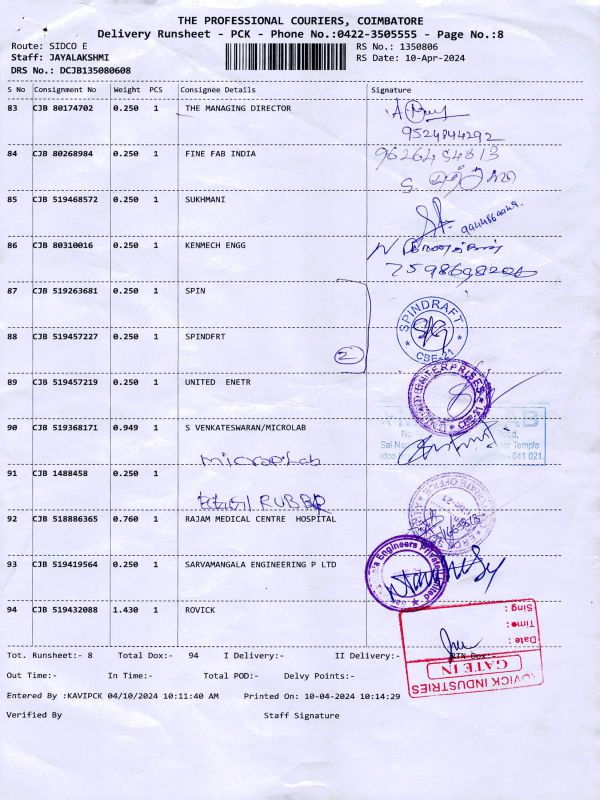 THE PROFESSIONAL COURIERS, COIMBATORE
Delivery Runsheet - PCK - Phone No.:0422-3505555 - Page No.:8
Route: SIDCO E RS No.: 1350806
Staff: JAYALAKSHMI RS Date: 10-Apr-2024
DRS No.: DCJB135080608
S No Consignment No Weight PCS Consignee Details Signature
83 CJB 80174702 0.250 1 THE MANAGING DIRECTOR
9524844292
84 CJB 80268984 0.250 1 FINE FAB INDIA 9626484813
85 CJB 519468572 0.250 1 SUKHMANI
86 CJB 80310016 0.250 1 KENMECH ENGG
87 CJB 519263681 0.250 1 SPIN
SPINDRAFT
88 CJB 519457227 0.250 1 SPINDFRT
2
CBE-21
89 CJB 519457219 0.250 1 UNITED ENETR
ENTERPRISES
CBE-21
90 CJB 519368171 0.949 1 S VENKATESWARAN/MICROLAB
Temple
641 021
microlab
91 CJB 1488458 0.250 1
RUBBER
92 CJB 518886365 0.760 1 RAJAM MEDICAL CENTRE HOSPITAL
93 CJB 519419564 0.250 1 SARVAMANGALA ENGINEERING P LTD
Engineers Private Limited
94 CJB 519432088 1.430 1 ROVICK
Sing :
Time :
Date :
GATE IN
ROVICK INDUSTRIES
Tot. Runsheet:- 8 Total Dox:- 94 I Delivery:- II Delivery:- RTN Dox:-
Out Time:- In Time:- Total POD:- Delvy Points:-
Entered By :KAVIPCK 04/10/2024 10:11:40 AM Printed On: 10-04-2024 10:14:29
Verified By Staff Signature